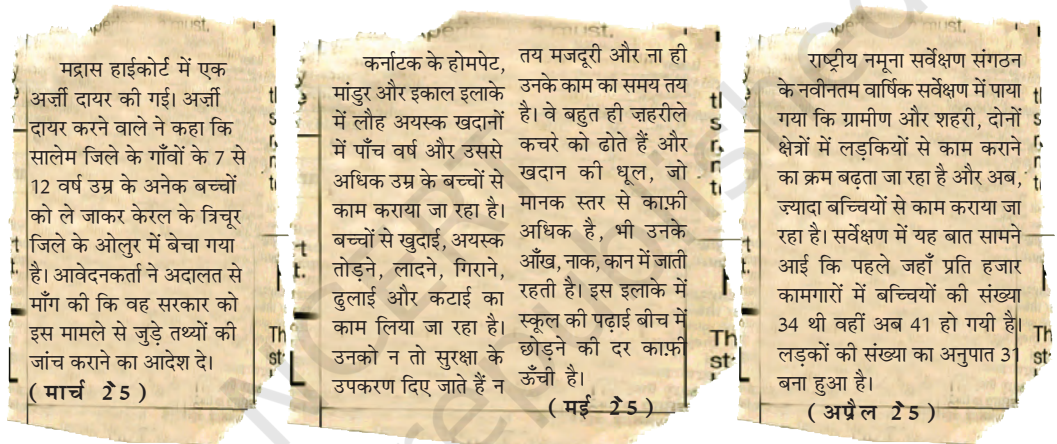 मद्रास हाईकोर्ट में एक
अर्ज़ी दायर की गई। अर्ज़ी
दायर करने वाले ने कहा कि
सालेम जिले के गाँवों के 7 से
12 वर्ष उम्र के अनेक बच्चों
को ले जाकर केरल के त्रिचूर
जिले के ओलुर में बेचा गया
है। आवेदनकर्ता ने अदालत से
माँग की कि वह सरकार को
इस मामले से जुड़े तथ्यों की
जांच कराने का आदेश दे।
( मार्च 25 )
कर्नाटक के होमपेट,
मांडुर और इकाल इलाके
में लौह अयस्क खदानों
में पाँच वर्ष और उससे
अधिक उम्र के बच्चों से
काम कराया जा रहा है।
बच्चों से खुदाई, अयस्क
तोड़ने, लादने, गिराने,
ढुलाई और कटाई का
काम लिया जा रहा है।
उनको न तो सुरक्षा के
उपकरण दिए जाते हैं न
तय मजदूरी और ना ही
उनके काम का समय तय
है। वे बहुत ही ज़हरीले
कचरे को ढोते हैं और
खदान की धूल, जो
मानक स्तर से काफ़ी
अधिक है, भी उनके
आँख, नाक, कान में जाती
रहती है। इस इलाके में
स्कूल की पढ़ाई बीच में
छोड़ने की दर काफ़ी
ऊँची है।
( मई 25 )
राष्ट्रीय नमूना सर्वेक्षण संगठन
के नवीनतम वार्षिक सर्वेक्षण में पाया
गया कि ग्रामीण और शहरी, दोनों
क्षेत्रों में लड़कियों से काम कराने
का क्रम बढ़ता जा रहा है और अब,
ज्यादा बच्चियों से काम कराया जा
रहा है। सर्वेक्षण में यह बात सामने
आई कि पहले जहाँ प्रति हजार
कामगारों में बच्चियों की संख्या
34 थी वहीं अब 41 हो गयी है।
लड़कों की संख्या का अनुपात 31
बना हुआ है।
( अप्रैल 25 )